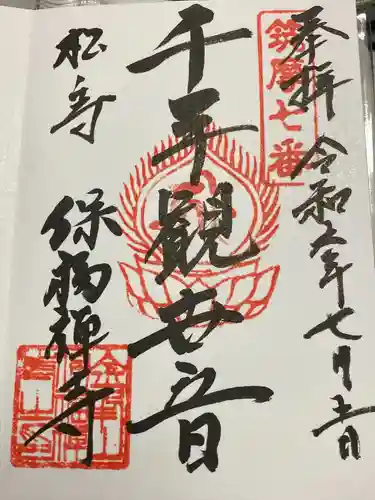 奉拝 令和六年七月十一日
筑摩七番
千手觀世音
保福禅寺